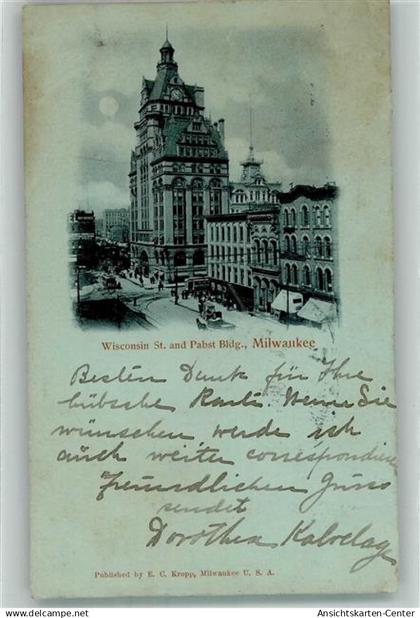 Wisconsin St. and Pabst Bldg., Milwaukee
Besten Dank für Ihre
hübsche Karte. Wenn Sie
wünschen werde ich
auch weiter correspondieren
Freundlichen Gruss
sendet
Dorothea
Published by E. C. Kropp, Milwaukee U. S. A.
Ansichtskarten-Center